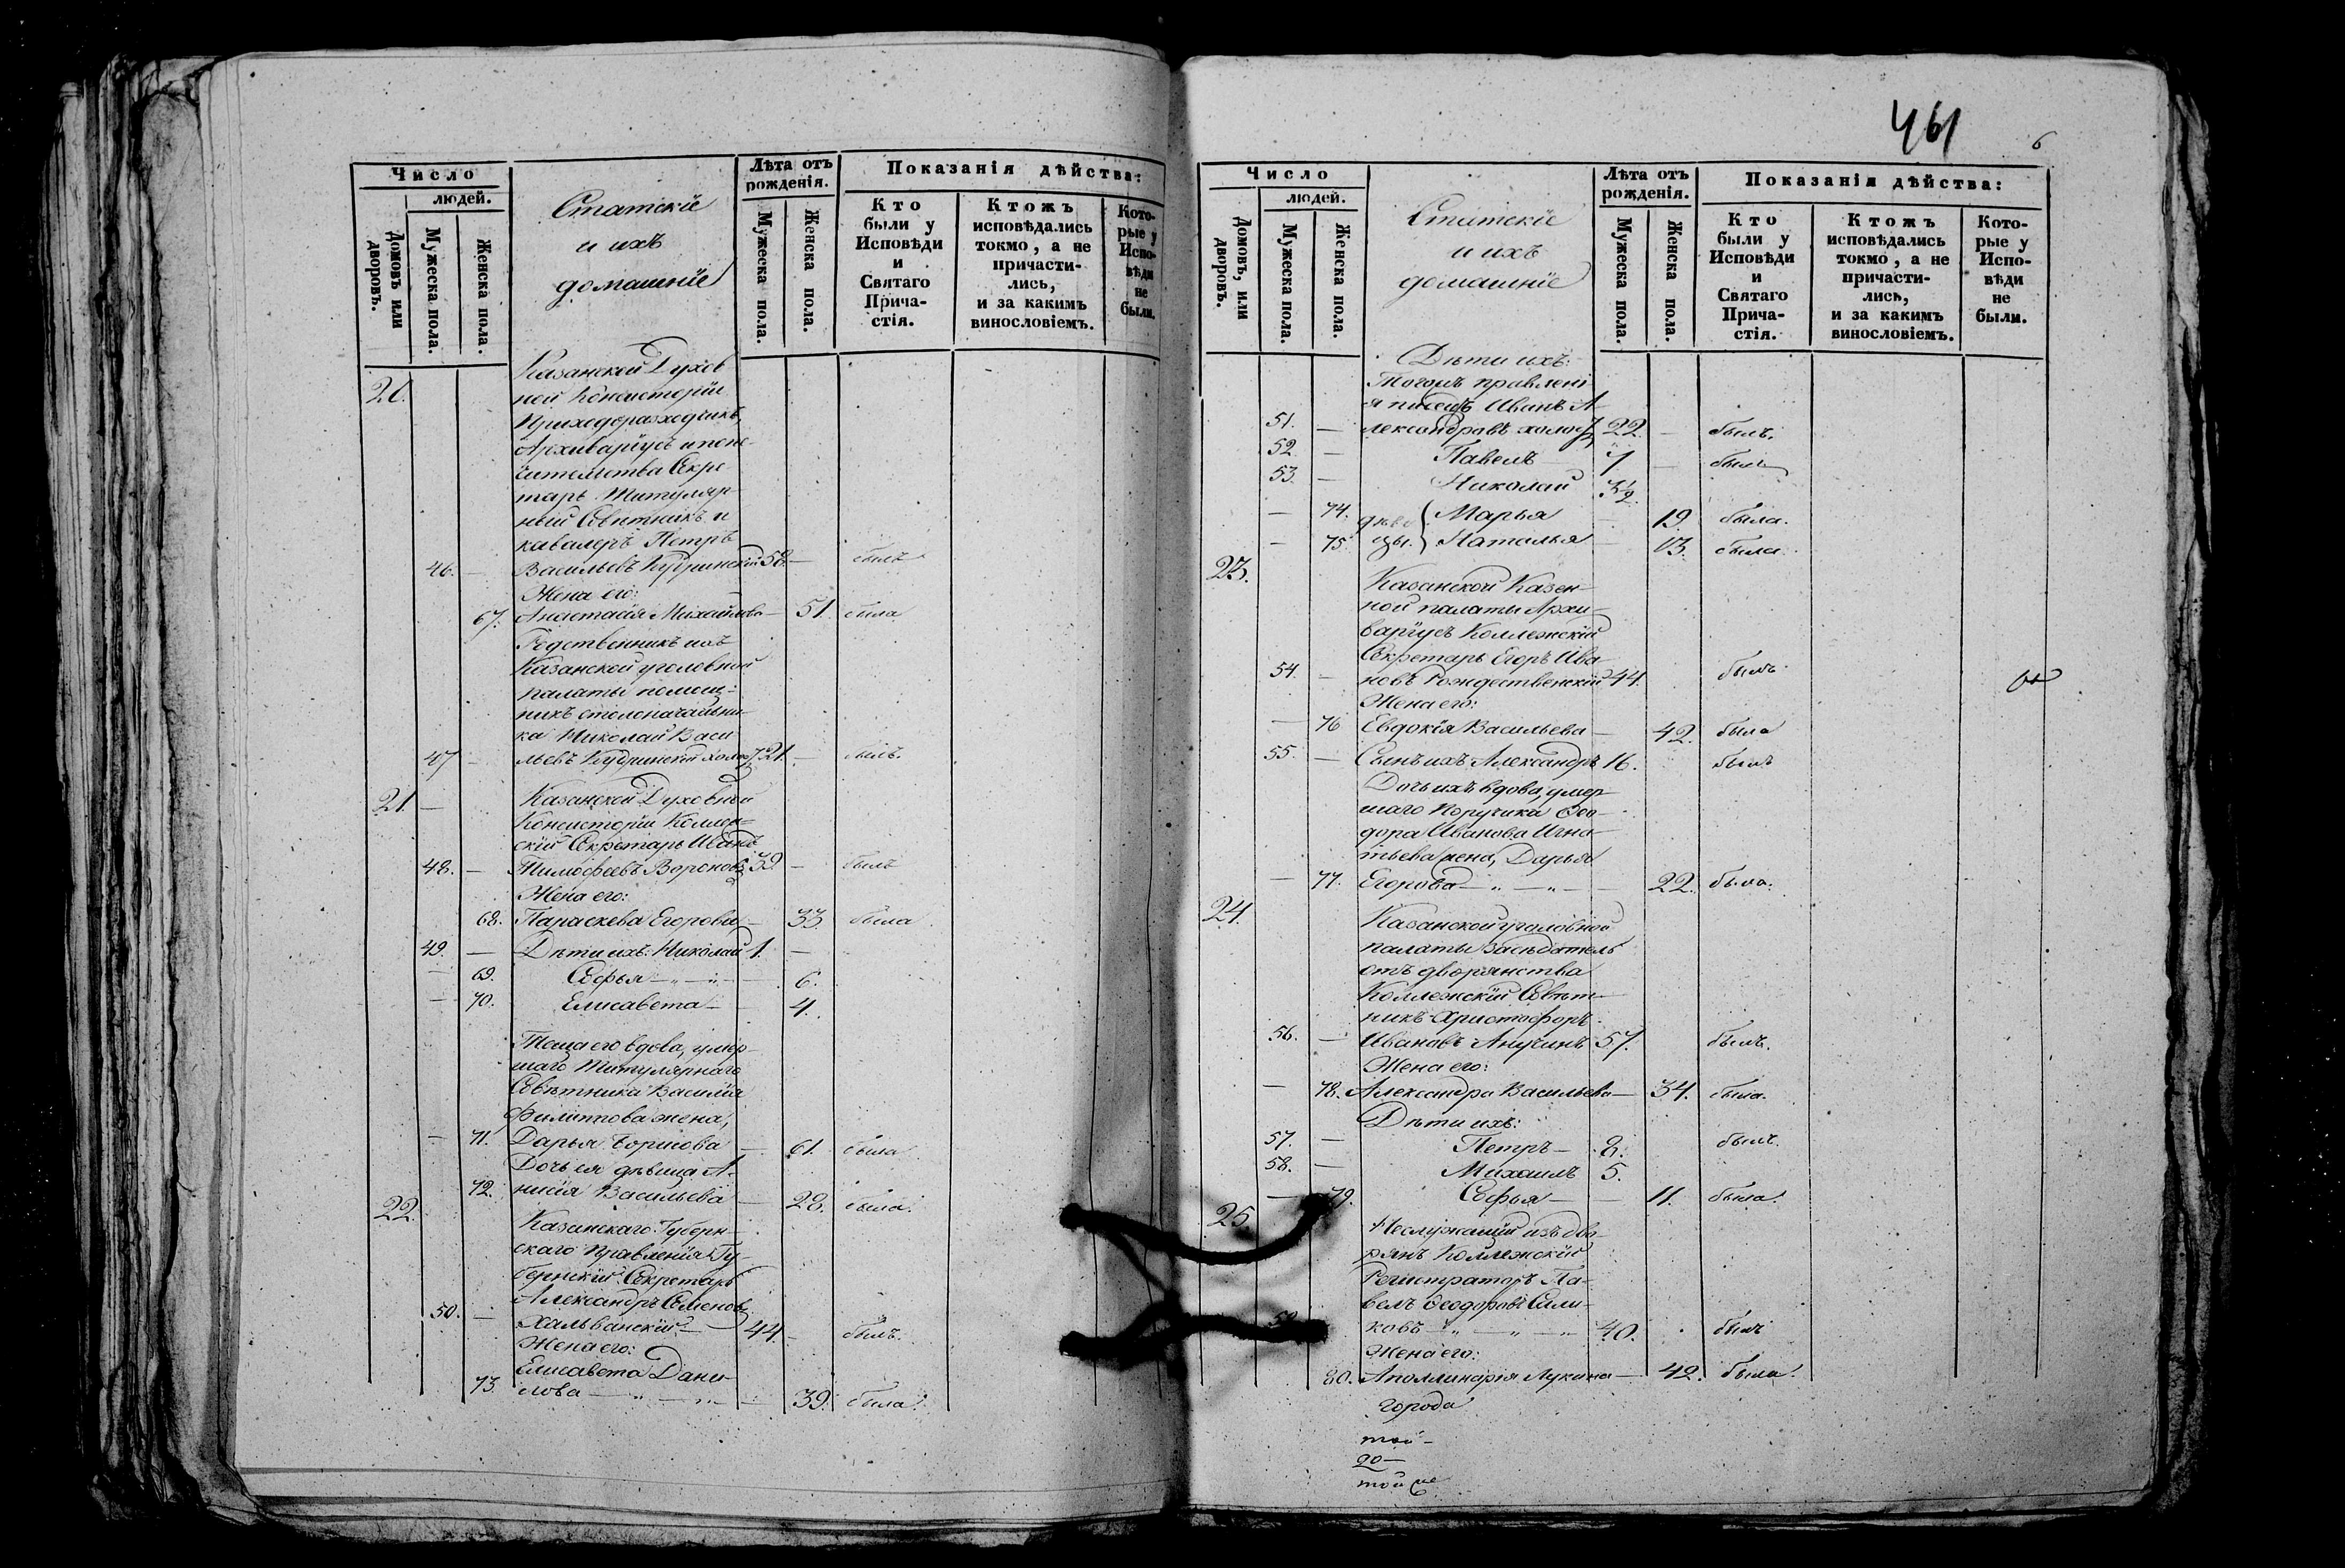 Число
людей.
Домовъ или дворовъ.
Мужеска пола.
Женска пола.
Статскіе
и ихъ
домашніе
Лѣта отъ рожденія.
Мужеска пола.
Женска пола.
Показанія дѣйства:
Кто были у Исповѣди и Святаго Прича-стія.
Ктожъ исповѣдались токмо, а не причасти-лись, и за какимъ винословіемъ.
Кото-рые у Испо-вѣди не были.
20.
Казанской Духов
ной Консисторіи
Приходорасходчикъ,
Архиваріусъ и попе
чительства Секре
тарь Титуляр-
ный Совѣтникъ и
кавалеръ Петръ
46. — Васильевъ Кудринскій 58. — былъ
Жена его:
67. Анастасія Михайлова — 51. была
Родственникъ ихъ
Казанской уголовной
палаты помощ-
никъ столоначальни-
ка Николай Васи
47 — льевъ Кудринскій холос. 21. — былъ.
21. — Казанской Духовной
Консисторіи Коллеж-
скій Секретарь Иванъ
48. — Тимофеевъ Вороновъ 39. — былъ
Жена его:
68. Параскева Егорова — 33. была
49. — Дѣти ихъ: Николай 1. —
— 69. Софья — „ — 6.
— 70. Елисавета — 4.
Теща его вдова, умер-
шаго Титулярнаго
Совѣтника Василія
Филиппова жена,
— 71. Дарья Борисова — 61. была
Дочь ея дѣвица А-
72. нисія Васильева — 28. была.
22.
Казанскаго Губерн-
скаго Правленія Гу-
бернскій Секретарь
Александръ Семеновъ
50. — Хальванскій — 44. — былъ.
Жена его:
Елисавета Дани-
73. лова — „ — „ — 39. была.
461
6
Число
людей.
Домовъ, или дворовъ.
Мужеска пола.
Женска пола.
Статскіе
и ихъ
домашніе
Лѣта отъ рожденія.
Мужеска пола.
Женска пола.
Показанія дѣйства:
Кто были у Исповѣди и Святаго Прича-стія.
Ктожъ исповѣдались токмо, а не причасти-лись, и за какимъ винословіемъ.
Кото-рые у Испо-вѣди не были.
Дѣти ихъ:
Тогожъ правлені-
я писецъ Иванъ А-
51. — лександровъ холос. 22. — былъ.
52. — Павелъ 7 — былъ
53. — Николай 3½.
— 74. дѣви { Марья — 19. была.
— 75. цы. { Наталья — 13. была.
23.
Казанской Казен-
ной палаты Архи-
варіусъ Коллежскій
Секретарь Егоръ Ива
54. — новъ Рождественскій 44. былъ
Жена его:
— 76 Евдокія Васильева — 42. была
55. — Сынъ ихъ Александръ 16. былъ
Дочь ихъ вдова, умер
шаго Поручика Ѳео-
дора Иванова Игна-
тьева жена, Дарья
— 77. Егорова — „ — „ — 22. была.
24.
Казанской уголовной
палаты Засѣдатель
отъ дворянства
Коллежскій Совѣт-
никъ Христофоръ
56. — Ивановъ Анучинъ 57. былъ.
Жена его:
— 78. Александра Васильева — 34. была.
Дѣти ихъ:
57. — Петръ — 8. былъ.
58. — Михаилъ 5.
— 79. Софья — 11. была.
25.
Неслужащій изъ дво-
рянъ Коллежскій
Регистраторъ Па-
велъ Ѳеодоровъ Сали-
59. ковъ — „ — „ — 40. былъ
Жена его:
80. Аполлинарія Лукина — 42. была.
города
той-
20—